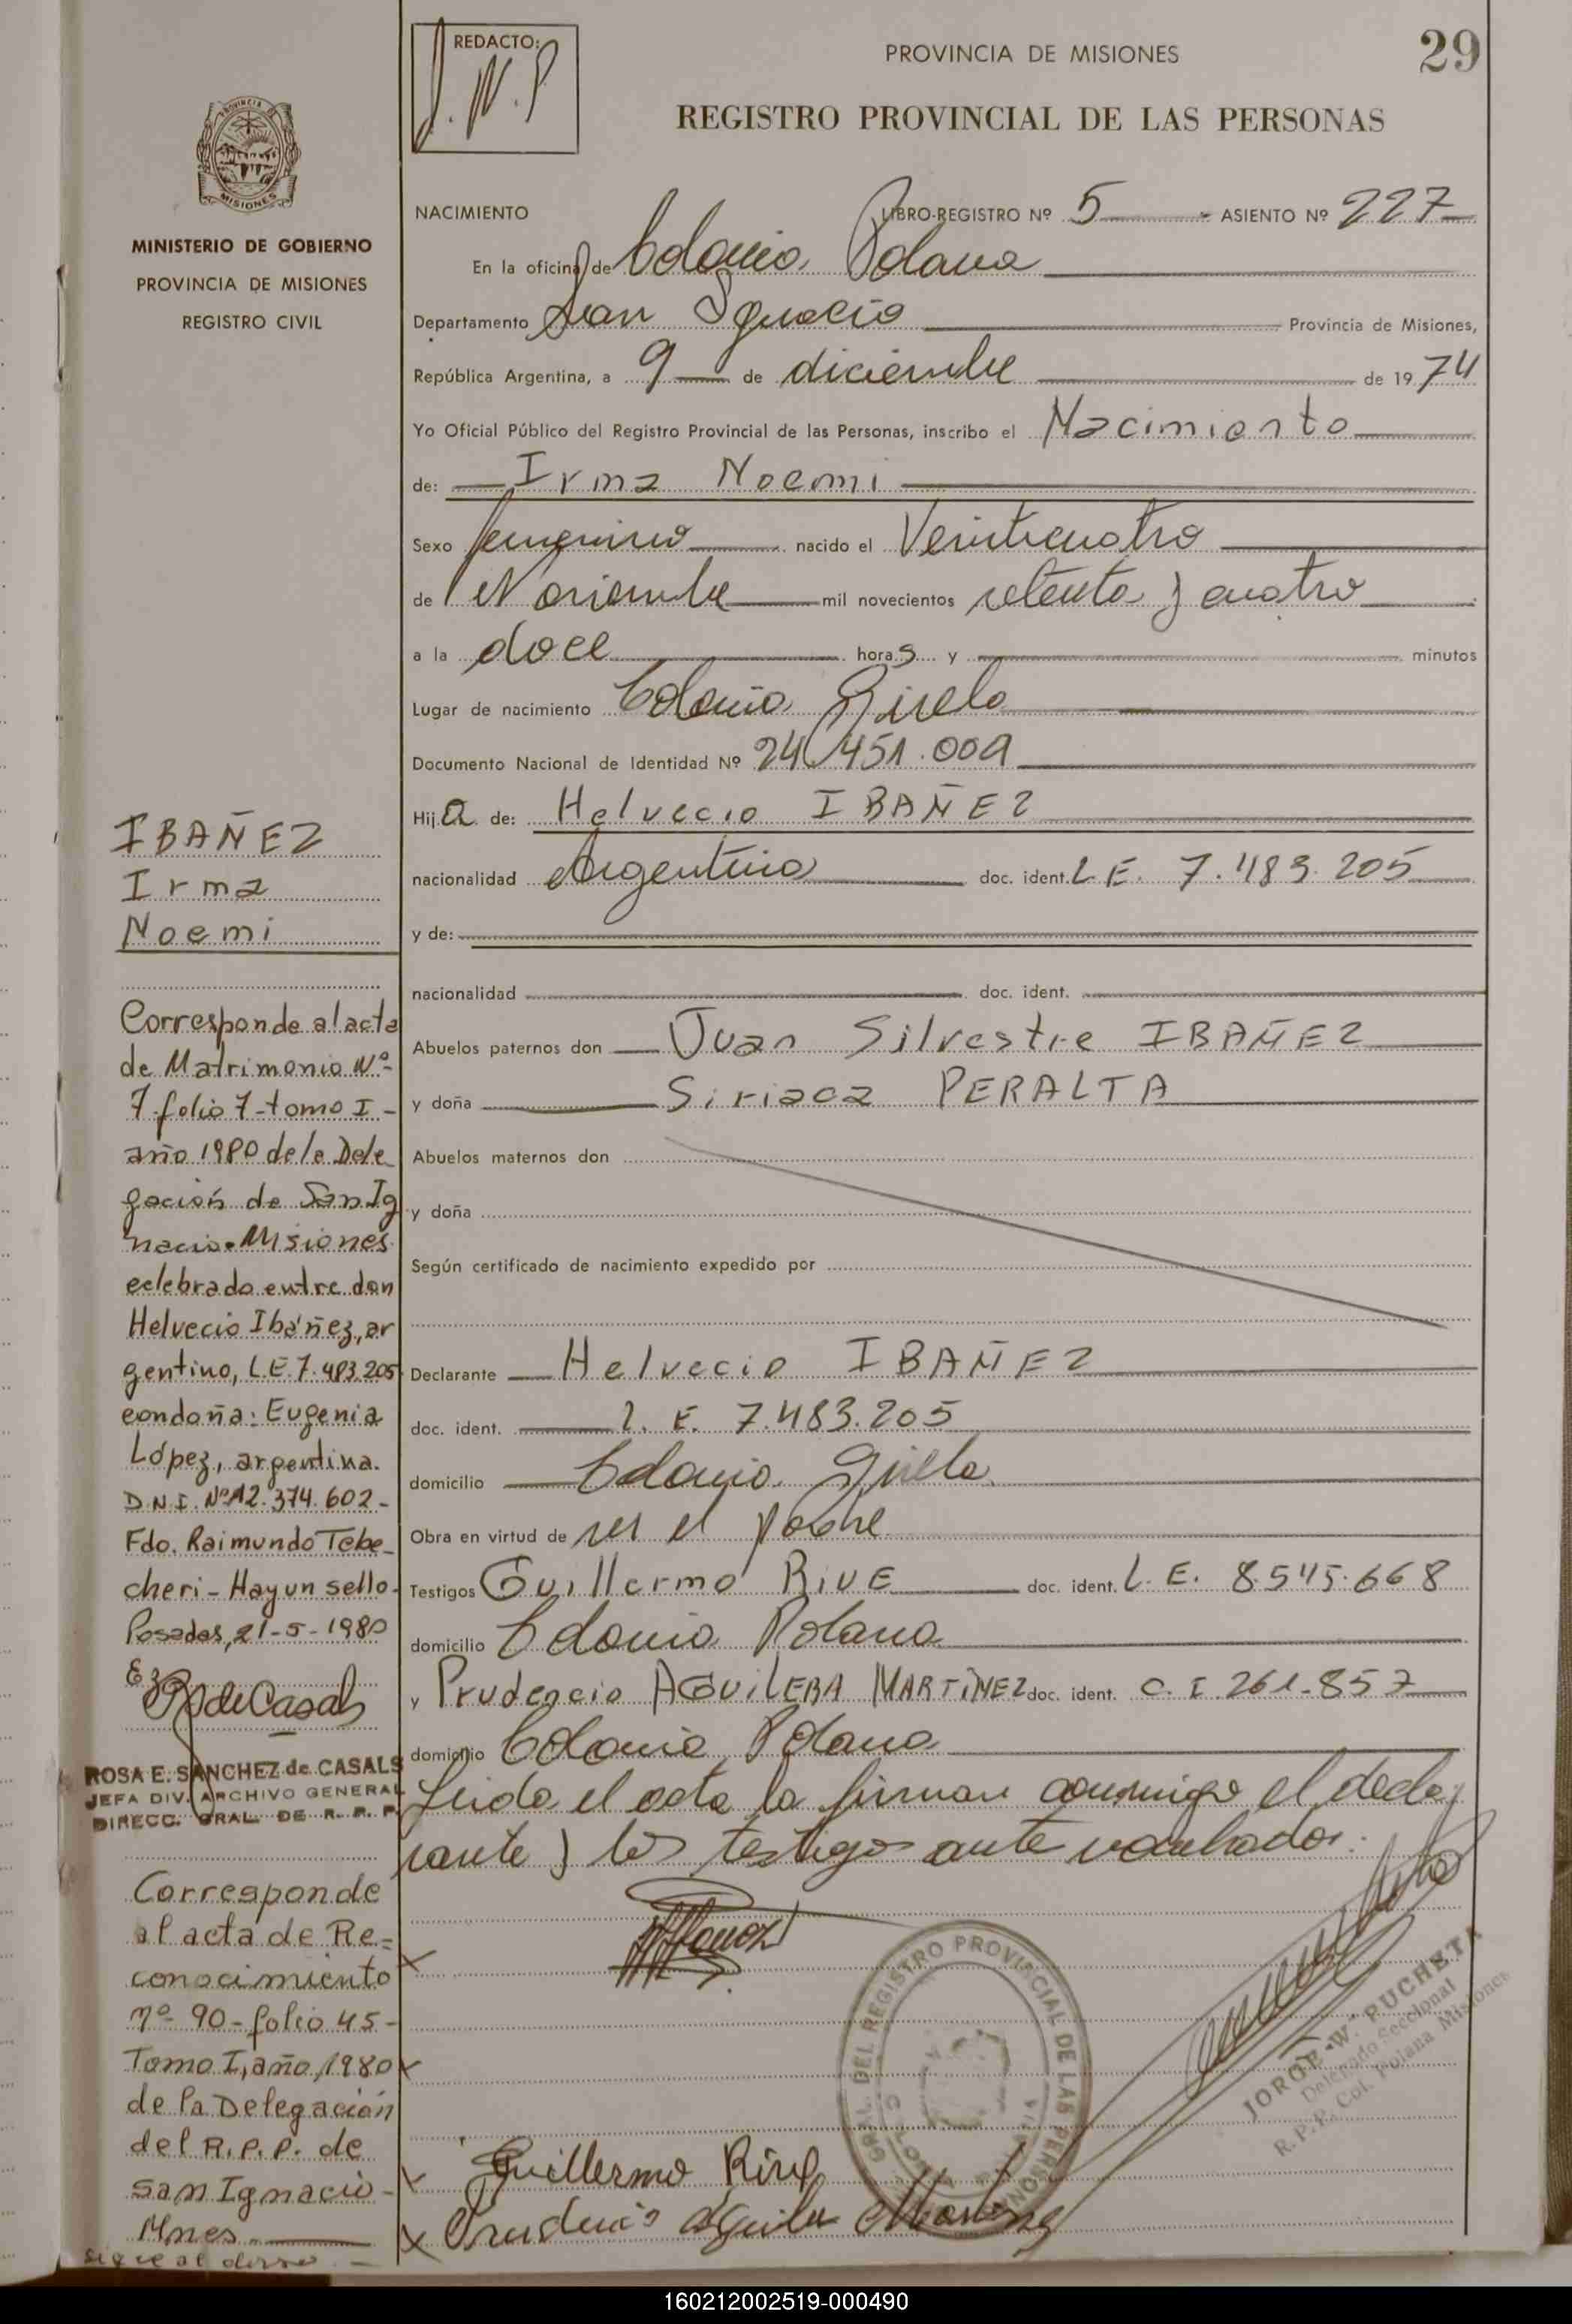 REDACTO:
J. W. P
PROVINCIA DE MISIONES
29
REGISTRO PROVINCIAL DE LAS PERSONAS
PROVINCIA
MISIONES
MINISTERIO DE GOBIERNO
PROVINCIA DE MISIONES
REGISTRO CIVIL
NACIMIENTO LIBRO-REGISTRO Nº 5 ASIENTO Nº 227
En la oficina de Colonia Polana
Departamento San Ignacio Provincia de Misiones,
República Argentina, a 9 de diciembre de 1974
Yo Oficial Público del Registro Provincial de las Personas, inscribo el Nacimiento
de: Irma Noemi
Sexo femenino nacido el Veinticuatro
de Noviembre mil novecientos setenta y cuatro
a la doce horas y minutos
Lugar de nacimiento Colonia
Documento Nacional de Identidad Nº 24.451.009
Hija de: Helvecio IBAÑEZ
nacionalidad Argentina doc. ident. L.E. 7.483.205
y de:
nacionalidad doc. ident.
Abuelos paternos don Juan Silvestre IBAÑEZ
y doña Siriaca PERALTA
Abuelos maternos don
y doña
Según certificado de nacimiento expedido por
Declarante Helvecio IBAÑEZ
doc. ident. L. E. 7.483.205
domicilio Colonia
Obra en virtud de ser el padre
Testigos Guillermo RIVE doc. ident. L. E. 8.545.668
domicilio Colonia Polana
y Prudencio AGUILERA MARTÍNEZ doc. ident. C. I. 261.857
domicilio Colonia Polana
Leida el acta la firman conmigo el decla
rante y los testigos ante nombrados.
IBAÑEZ
Irma
Noemi
Corresponde al acta
de Matrimonio Nº
7 folio 7 - tomo I -
año 1980 de la Dele
gación de San Ig
nacio - Misiones
celebrado entre don
Helvecio Ibáñez, ar
gentino, L.E. 7.483.205
con doña: Eugenia
López, argentina.
D.N.I. Nº 12.374.602 -
Fdo. Raimundo Tebe
cheri - Hay un sello -
Posadas, 21-5-1980
R S de Casals
ROSA E. SANCHEZ de CASALS
JEFA DIV. ARCHIVO GENERAL
DIRECC. GRAL. DE R. P. P.
Corresponde
al acta de Re=
conocimiento
nº 90 - folio 45 -
Tomo I, año, 1980
de la Delegación
del R.P.P. de
San Ignacio -
Mnes.
sigue al dorso
GRAL. DEL REGISTRO PROVINCIAL DE LAS PERSONAS
JORGE W. PUCHETA
Delegado Seccional
R.P.P. Col. Polana Misiones
Guillermo Rive
Prudencio Aguilera Martinez
160212002519-000490